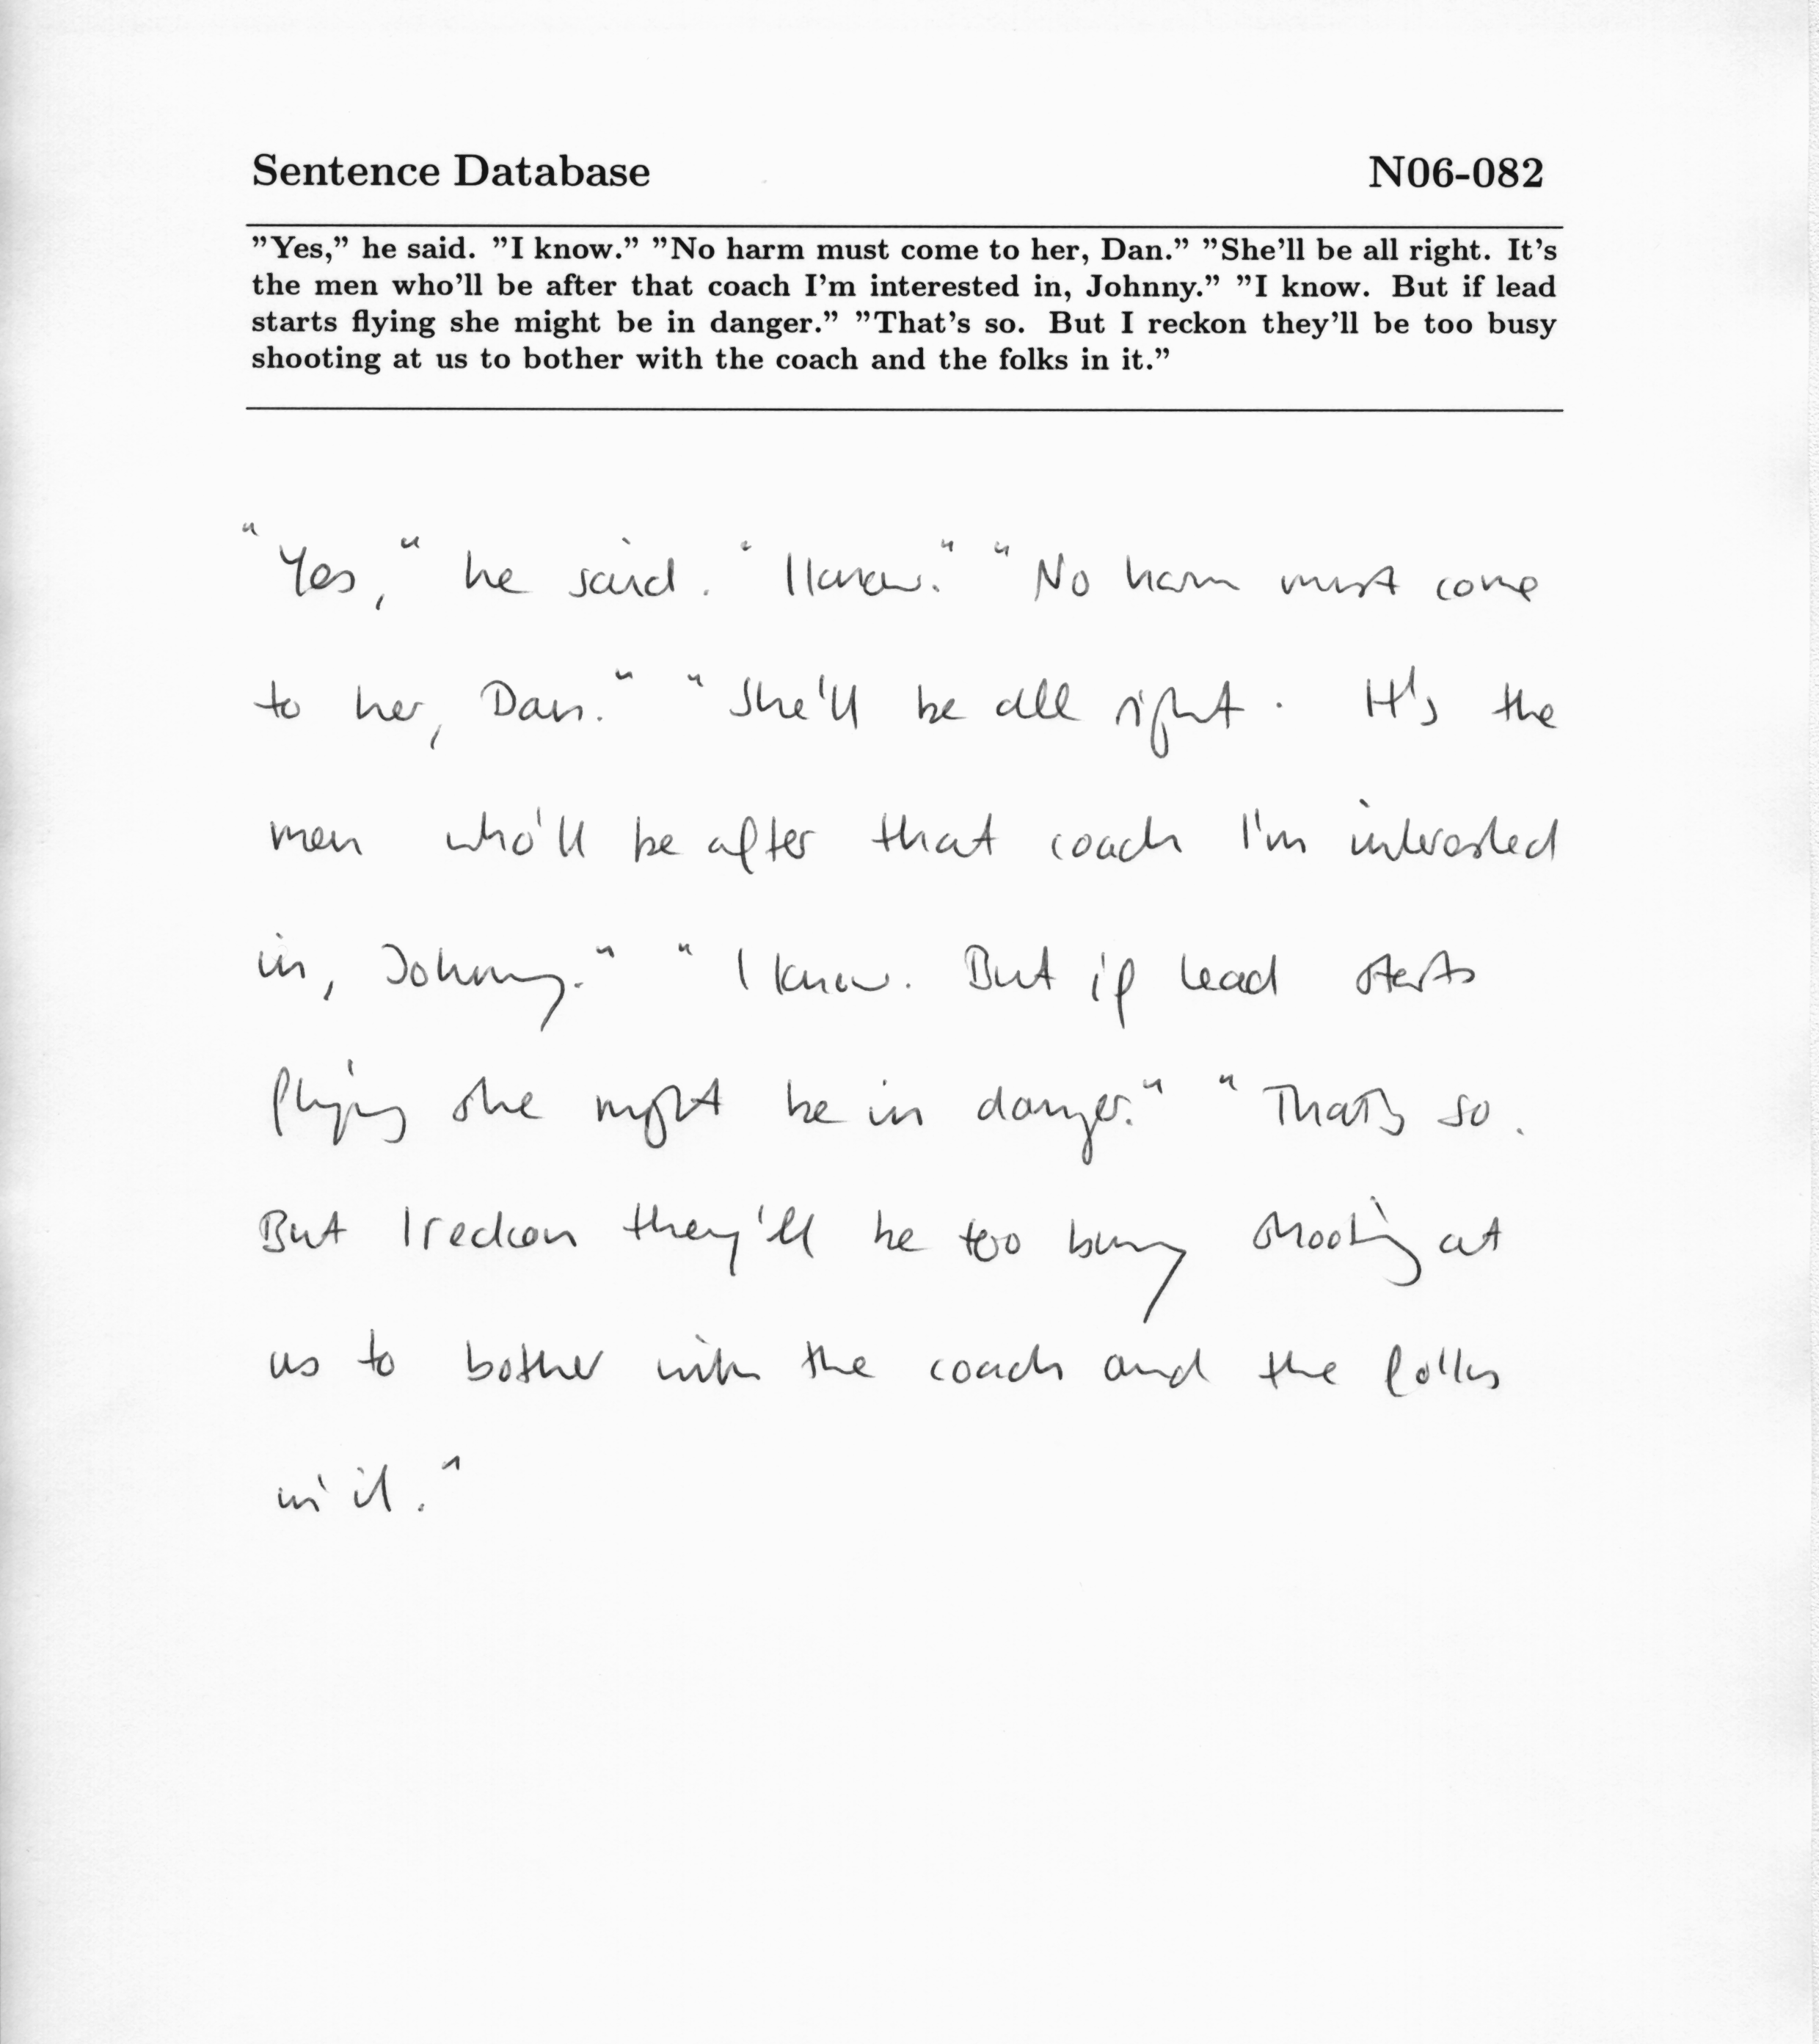 Sentence Database N06-082
”Yes,” he said. ”I know.” ”No harm must come to her, Dan.” ”She’ll be all right. It’s
the men who’ll be after that coach I’m interested in, Johnny.” ”I know. But if lead
starts flying she might be in danger.” ”That’s so. But I reckon they’ll be too busy
shooting at us to bother with the coach and the folks in it.”
"Yes," he said. "I know." "No harm must come
to her, Dan." "She'll be all right. It's the
men who'll be after that coach I'm interested
in, Johnny." "I know. But if lead starts
flying she might be in danger." "That's so.
But I reckon they'll be too busy shooting at
us to bother with the coach and the folks
in it."